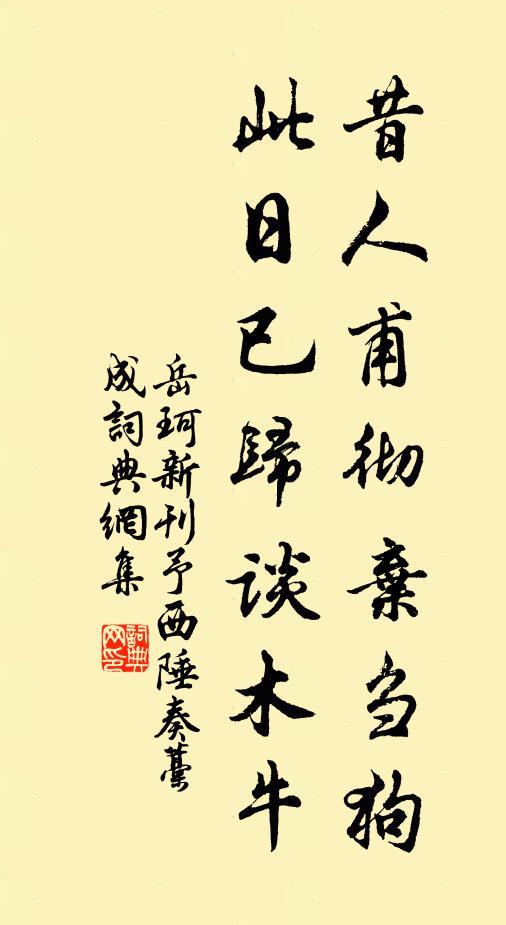 昔人甫彻棄刍狗
此日已歸談木牛
岳珂新刊予西陲奏藁
成詞典網集
詞典网印